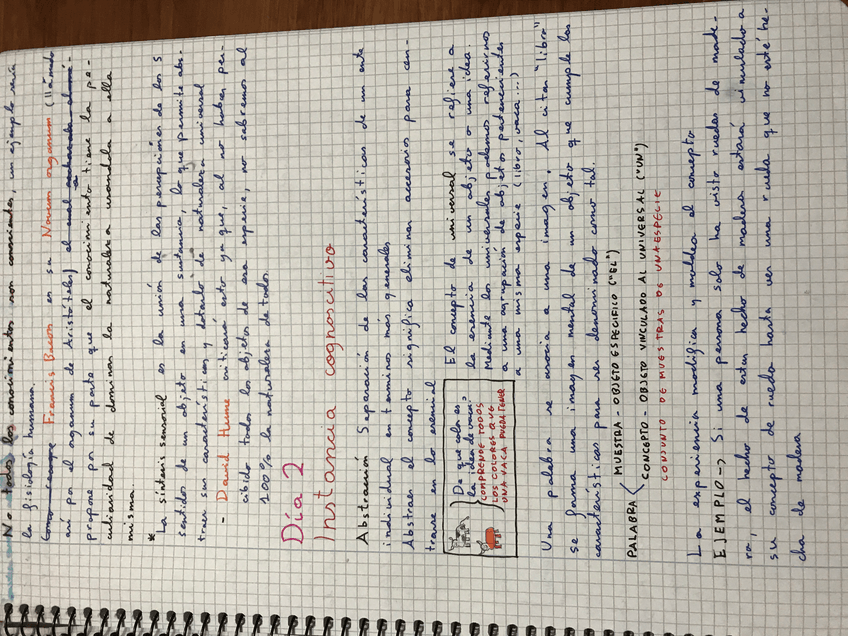 No todos los conocimientos son conscientes, un ejemplo sería
la fisiología humana.
Como recoge Francis Bacon en su Novum organum (llamado
así por el organum de Aristóteles) el cual
propone por su parte que el conocimiento tiene la pe-
culiaridad de dominar la naturaleza usandola a ella
misma.
* La síntesis sensorial es la unión de las percepciones de los 5
sentidos de un objetos en una sustancia, lo que permite abs-
traer sus características y dotarlo de naturaleza universal
- David Hume criticará esto ya que, al no haber per-
cibido todos los objetos de esa especie, no sabremos al
100% la naturaleza de todo.
Día 2
Instancia cognoscitiva
Abstracción Separación de las características de un ente
individual en terminos más generales
Abstraer el concepto significa eliminar accesorios para cen-
trarse en lo esencial
De que color es
la idea de vaca?
COMPRENDE TODOS
LOS COLORES QUE
UNA VACA PUEDA TENER
El concepto de universal se refiere a
la esencia de un objeto o una idea.
Mediante los universales podemos referirnos
a una agrupación de objetos pertenecientes
a una misma especie (libro, vaca...)
Una palabra se asocia a una imagen. Al citar "libro"
se forma una imagen mental de un objeto que cumple las
características para ser denominado como tal.
PALABRA
MUESTRA - OBJETO ESPECIFICO ("EL")
CONCEPTO - OBJETO VINCULADO AL UNIVERSAL ("UN")
CONJUNTO DE MUESTRAS DE UNA ESPECIE
La experiencia modifica y moldea el concepto
EJEMPLO -> Si una persona solo ha visto ruedas de made-
ra, el hecho de estar hecho de madera estará vinculado a
su concepto de rueda hasta ver una rueda que no esté he-
cha de madera